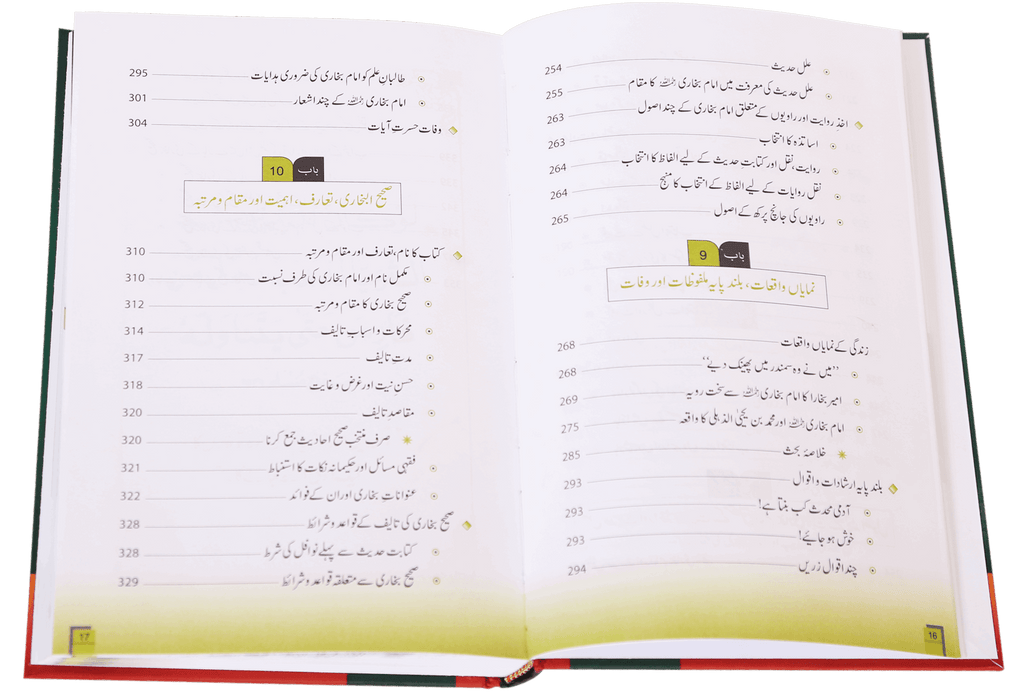 علل حدیث 254
علل حدیث کی معرفت میں امام بخاری رحمہ اللہ کا مقام 255
اخذِ روایت اور راویوں کے متعلق امام بخاری کے چند اصول 263
اساتذہ کا انتخاب 263
روایت، نقل اور کتابت حدیث کے لیے الفاظ کا انتخاب 264
نقل روایات کے لیے الفاظ کے انتخاب کا منہج 264
راویوں کی جانچ پرکھ کے اصول 265
باب 9
نمایاں واقعات، بلند پایہ ملفوظات اور وفات
زندگی کے نمایاں واقعات 268
’’میں نے وہ سمندر میں پھینک دیے‘‘ 268
امیر بخارا کا امام بخاری رحمہ اللہ سے سخت رویہ 269
امام بخاری رحمہ اللہ اور محمد بن یحییٰ الذہلی کا واقعہ 275
خلاصۂ بحث 285
بلند پایہ ارشادات و اقوال 293
آدمی محدث کب بنتا ہے! 293
خوش ہو جائیے! 293
چند اقوال زریں 294
16
طالبانِ علم کو امام بخاری کی ضروری ہدایات 295
امام بخاری رحمہ اللہ کے چند اشعار 301
وفات حسرت آیات 304
باب 10
صحیح البخاری، تعارف، اہمیت اور مقام و مرتبہ
کتاب کا نام، تعارف اور مقام و مرتبہ 310
مکمل نام اور امام بخاری کی طرف نسبت 310
صحیح بخاری کا مقام و مرتبہ 312
محرکات و اسبابِ تالیف 314
مدتِ تالیف 317
حسنِ نیت اور غرض و غایت 318
مقاصدِ تالیف 320
صرف منتخب صحیح احادیث جمع کرنا 320
فقہی مسائل اور حکیمانہ نکات کا استنباط 321
عنوانات بخاری اور ان کے فوائد 322
صحیح بخاری کی تالیف کے قواعد و شرائط 328
کتابت حدیث سے پہلے نوافل کی شرط 328
صحیح بخاری سے متعلقہ قواعد و شرائط 329
17